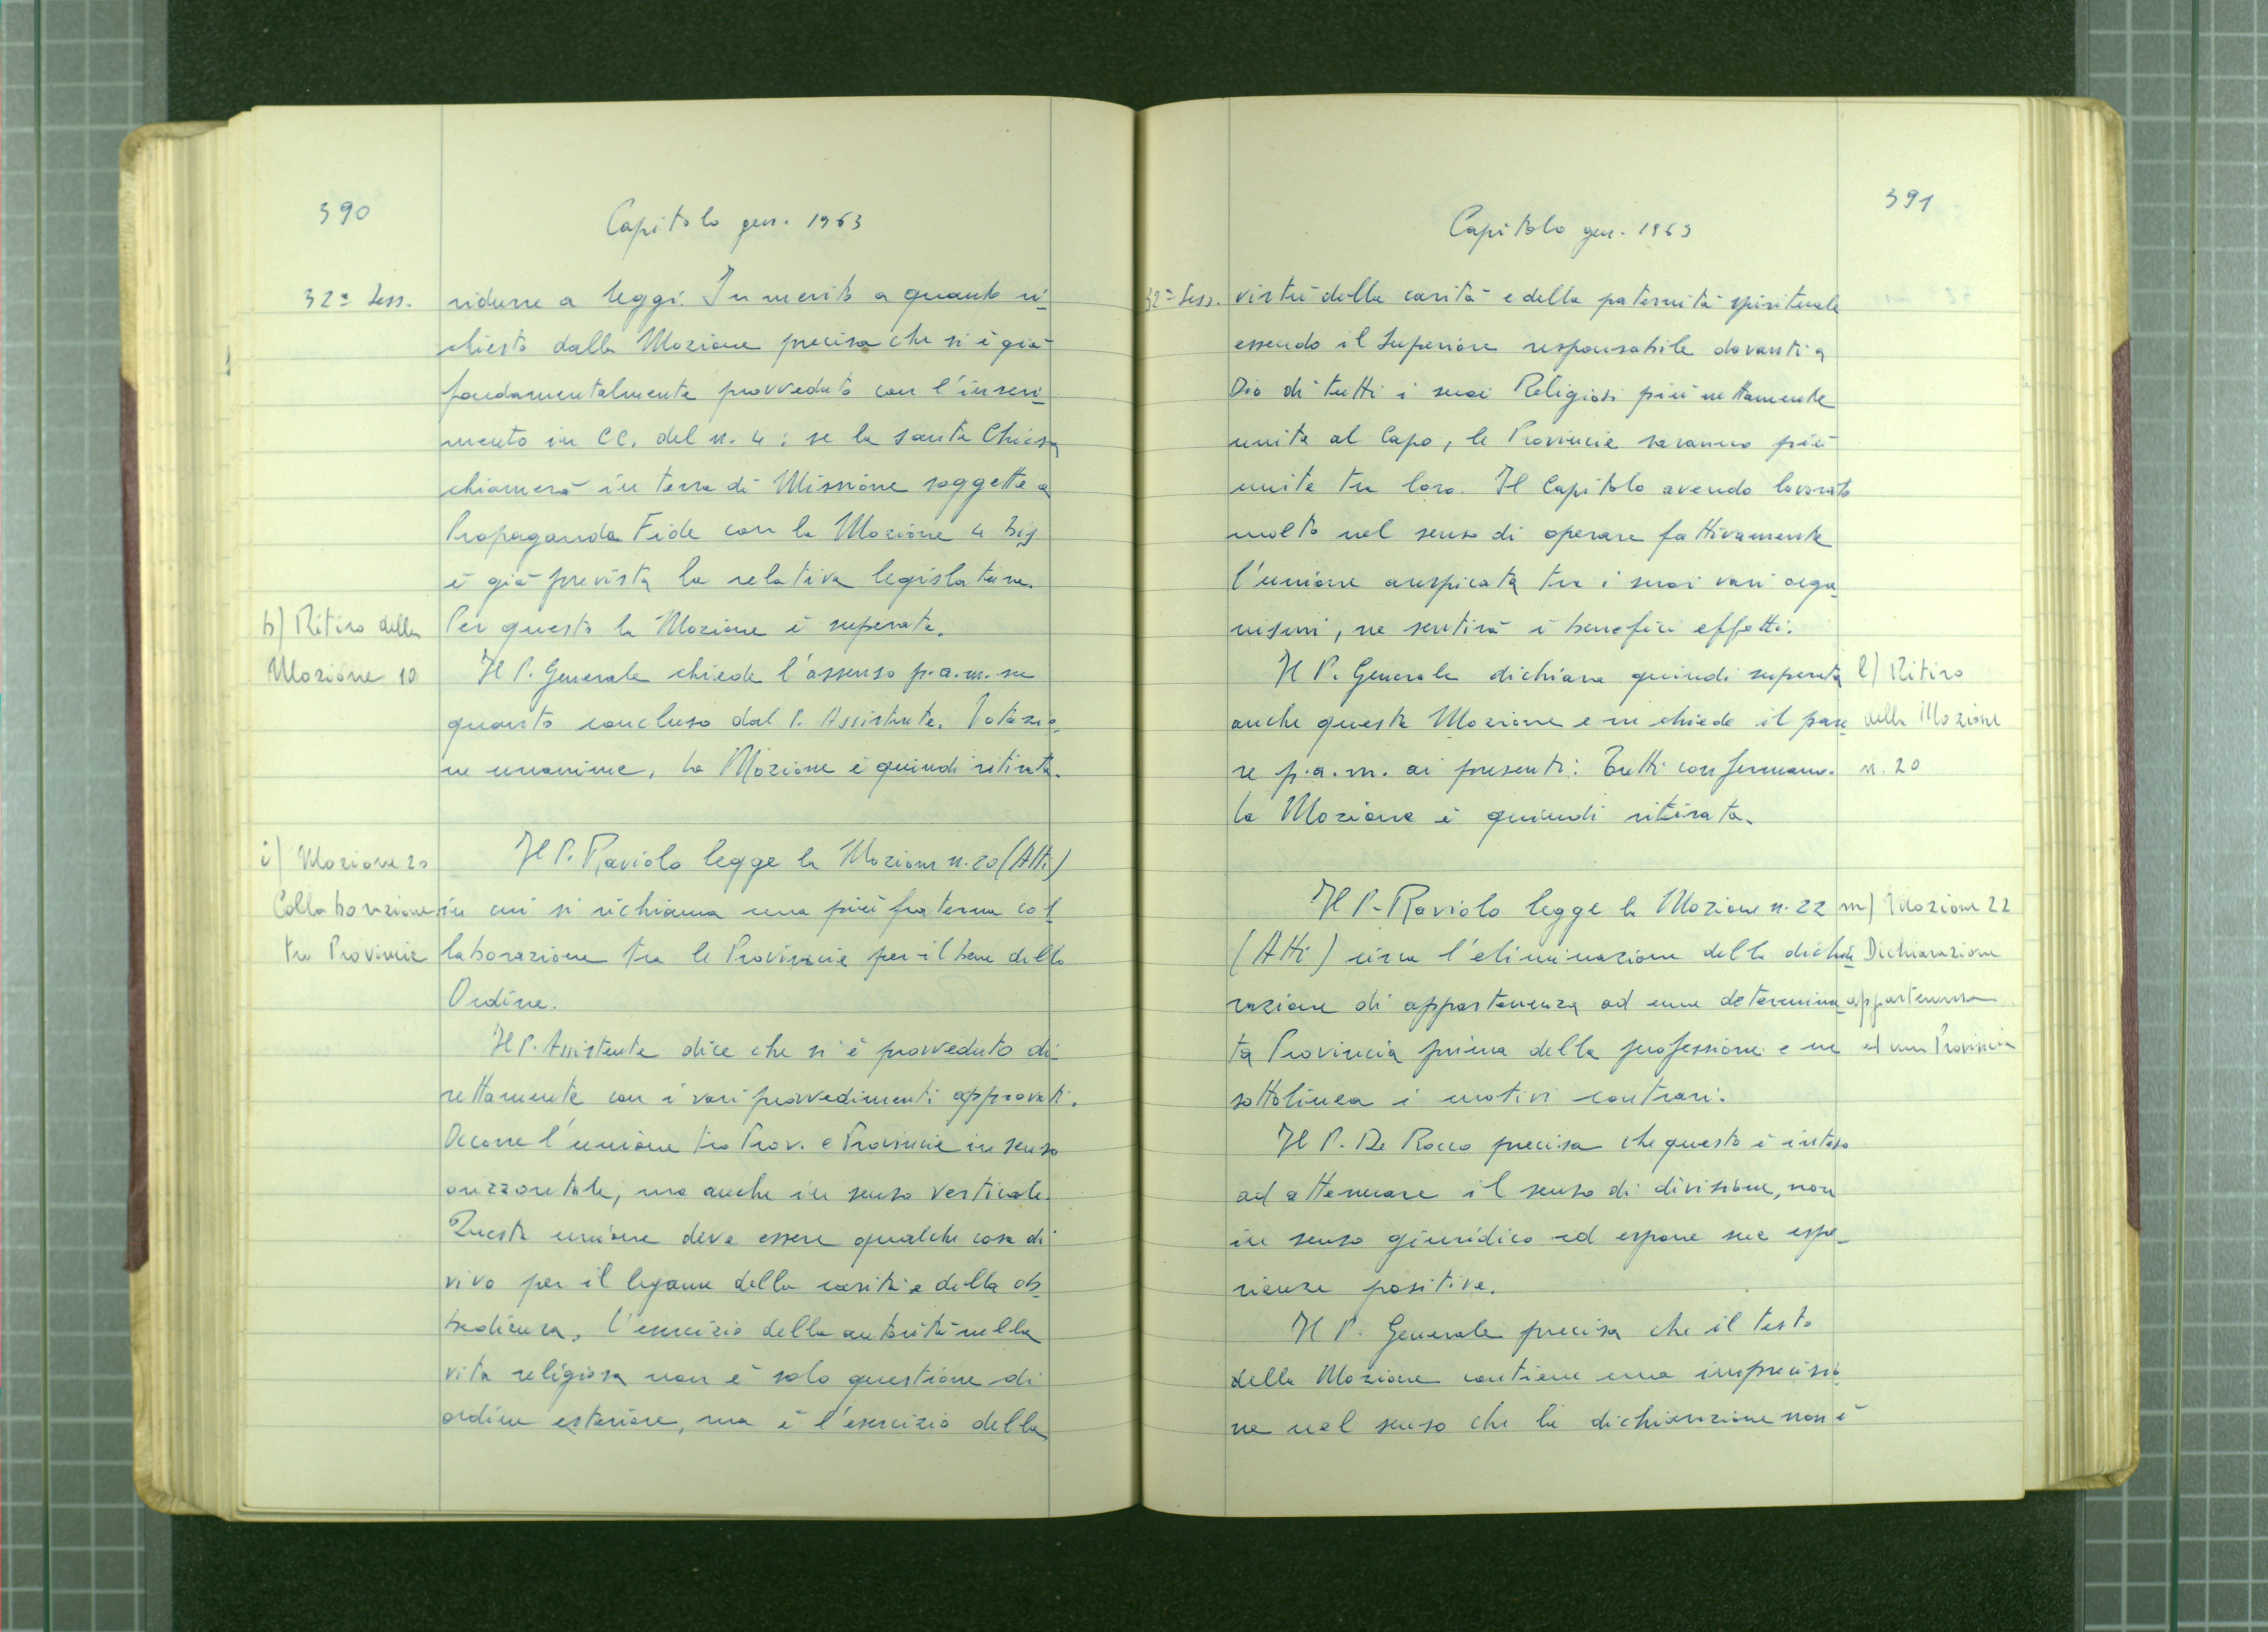 390
Capitolo gen. 1963
32ª Sess.
ridurre a leggi. In merito a quanto ri
chiesto dalla Mozione precisa che si è già
fondamentalmente provveduto con l'inseri
mento in CC. del n. 4: se la santa Chiesa
chiamerà in terra di Missione soggette a
Propaganda Fide con la Mozione 4 bis
è già prevista la relativa legislatura.
h) Ritiro della
Per questo la Mozione è superata.
Mozione 10
Il P. Generale chiede l'assenso p.a.m. su
quanto concluso dal P. Assistente. Votazio
ne unanime. La Mozione è quindi ritirata.
i) Mozione 20
Il P. Raviolo legge la Mozione n. 20 (Atti)
Collaborazione
in cui si richiama una più fraterna col
tra Provincie
laborazione tra le Provincie per il bene dello
Ordine.
Il P. Assistente dice che si è provveduto di
rettamente con i vari provvedimenti approvati.
Occorre l'unione tra Prov. e Provincie in senso
orizzontale, ma anche in senso verticale.
Questa unione deve essere qualche cosa di
vivo per il legame della carità e della ob
bedienza. L'esercizio della autorità nella
vita religiosa non è solo questione di
ordine esteriore, ma è l'esercizio della
391
Capitolo gen. 1963
32ª Sess.
virtù della carità e della paternità spirituale
essendo il Superiore responsabile davanti a
Dio di tutti i suoi Religiosi più nettamente
unite al Capo, le Provincie saranno più
unite tra loro. Il Capitolo avendo lavorato
molto nel senso di operare fattivamente
l'unione auspicata tra i suoi vari orga
nismi, ne sentirà i benefici effetti.
Il P. Generale dichiara quindi superata
l) Ritiro
anche questa Mozione e ne chiede il pare
della Mozione
re p.a.m. ai presenti: Tutti confermano.
n. 20
La Mozione è quindi ritirata.
Il P. Raviolo legge la Mozione n. 22
m) Mozione 22
(Atti) circa l'eliminazione della dichia
Dichiarazione
razione di appartenenza ad una determina
appartenenza
ta Provincia prima della professione e ne
ad una Provincia
sottolinea i motivi contrari.
Il P. De Rocco precisa che questo è inteso
ad attenuare il senso di divisione, non
in senso giuridico ed espone sue espe-
rienze positive.
Il P. Generale precisa che il testo
della Mozione contiene una imprecisio
ne nel senso che la dichiarazione non è